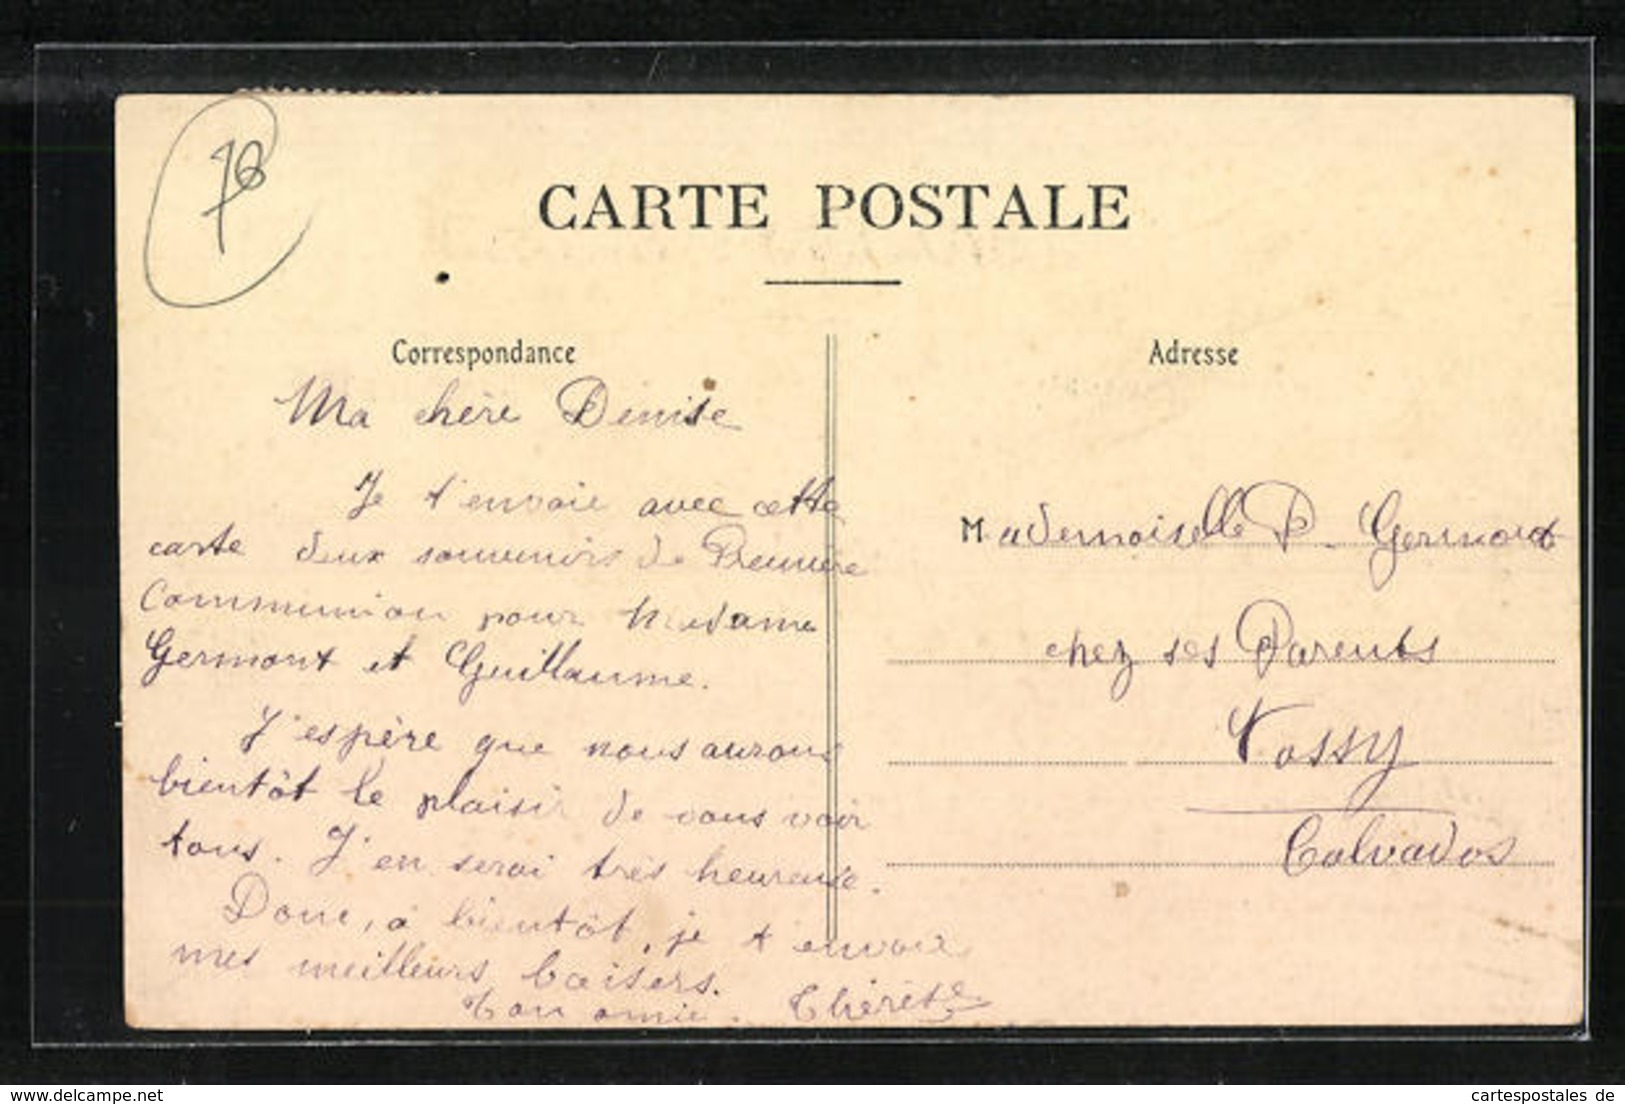 76
CARTE POSTALE
Correspondance
Adresse
Ma chère Denise
Je t'envoie avec cette
carte deux souvenirs de Première
Communion pour Madame
Germont et Guillaume.
J'espère que nous aurons
bientôt le plaisir de vous voir
tous. J'en serai très heureuse.
Donc, à bientôt, je t'envoie
mes meilleurs baisers.
Ton amie. Thérèse
Mademoiselle D. Germont
chez ses Parents
Vossy
Calvados
www.delcampe.net
cartespostales de